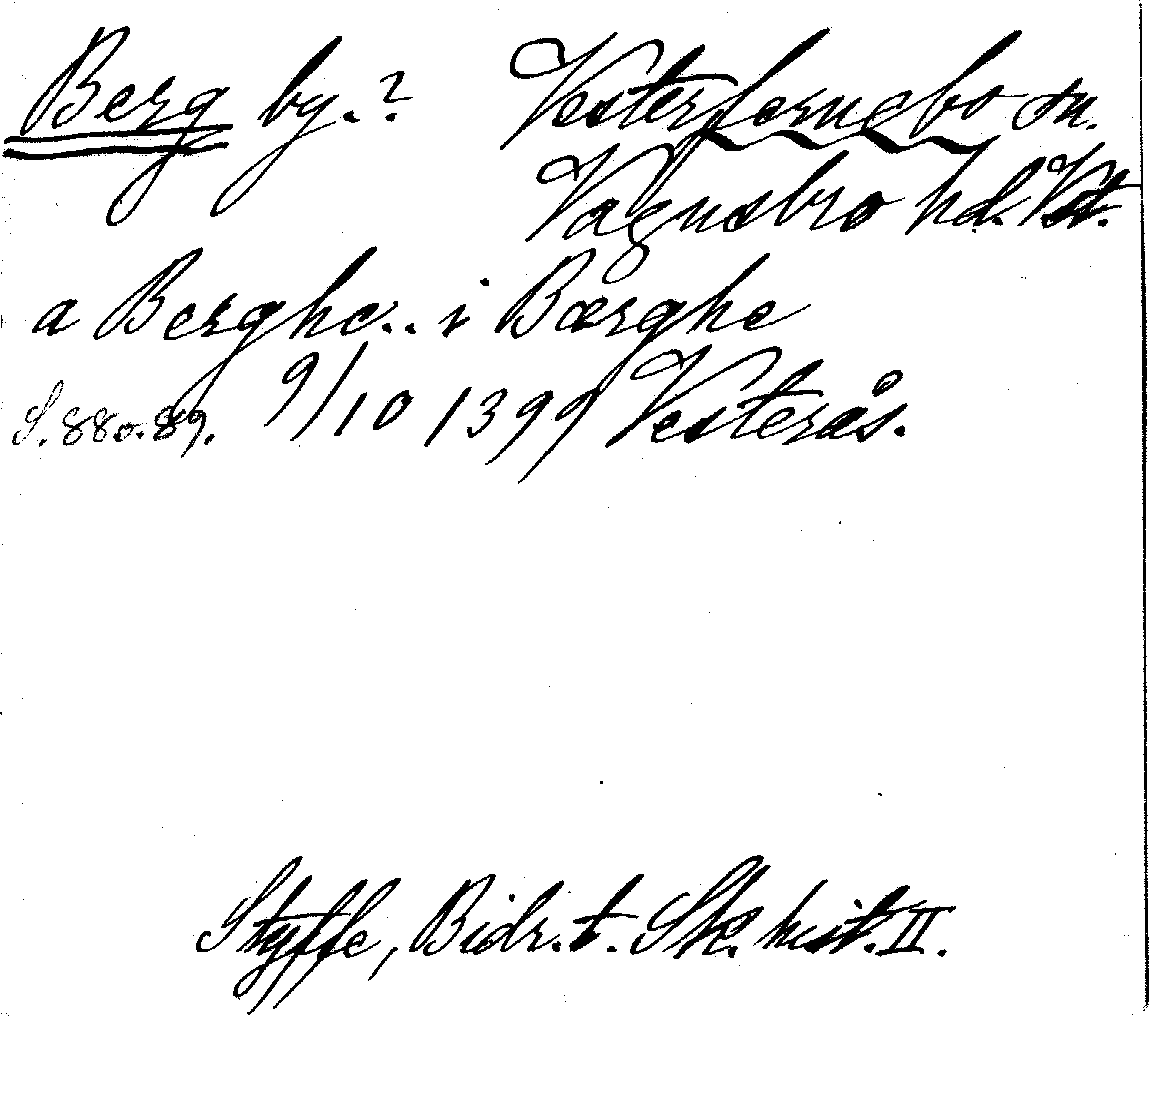 Berg by.? Vesterfernebo sn.
Vagnsbro hd. Vst.
a Berghe.. i Bærghe
S. 88 o. 89. 9/10 1399 Vesterås.
Styffe, Bidr. t. Sk. hist. II.